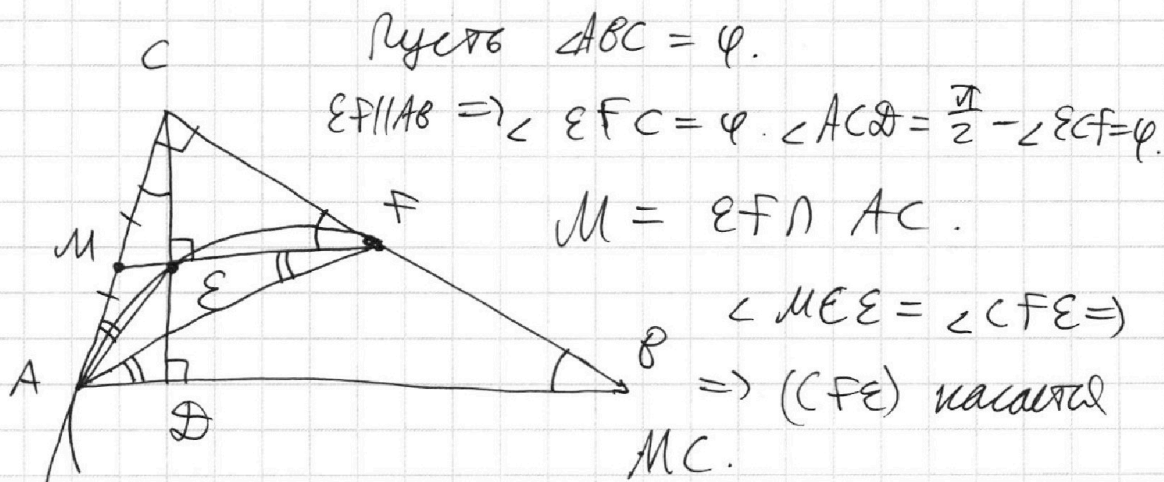 Пусть ∠ABC = φ.
EF||AB => ∠ EFC = φ. ∠ACD = π/2 - ∠ECF = φ.
M = EF ∩ AC.
∠ MCE = ∠CFE =>
=> (CFE) касается
MC.
C
M
F
E
A
D
B